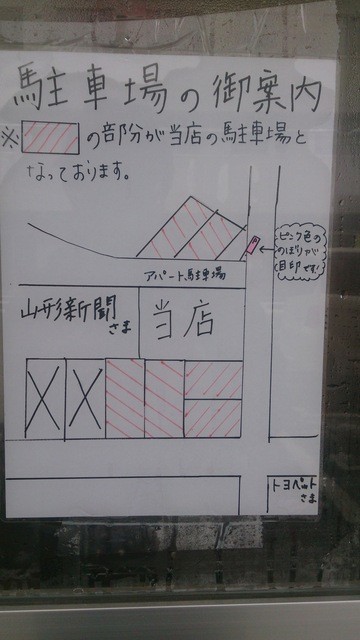 駐車場の御案内
※ の部分が当店の駐車場と
なっております。
ピンク色の
のぼりが
目印です!
アパート駐車場
山形新聞
さま
当店
トヨペット
さま